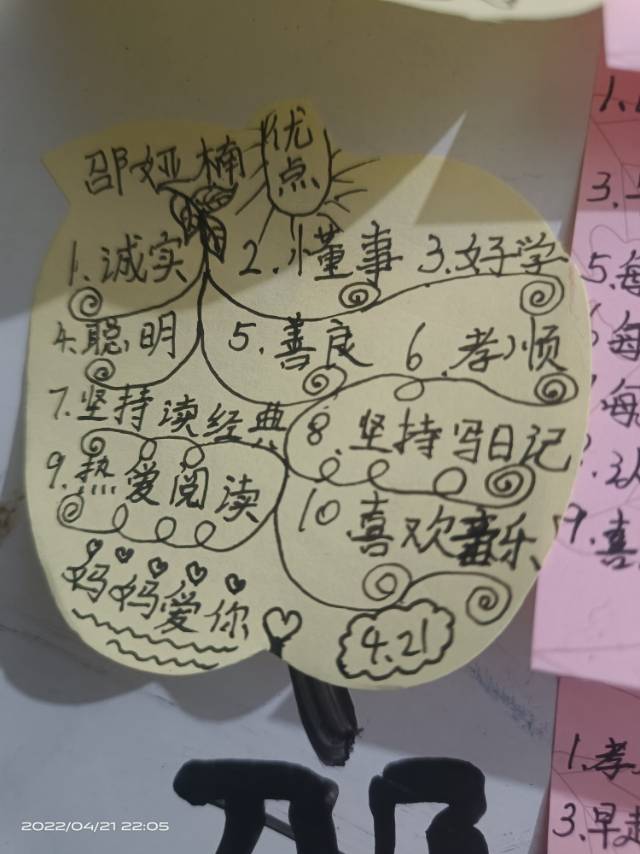 邵娅楠
优点
1.诚实 2.懂事 3.好学
4.聪明 5.善良 6.孝顺
7.坚持读经典
8.坚持写日记
9.热爱阅读
10.喜欢音乐
妈妈爱你
4.21
1.
3.
5.每
每
每
认
9.喜
1.孝
3.早起
邵
2022/04/21 22:05